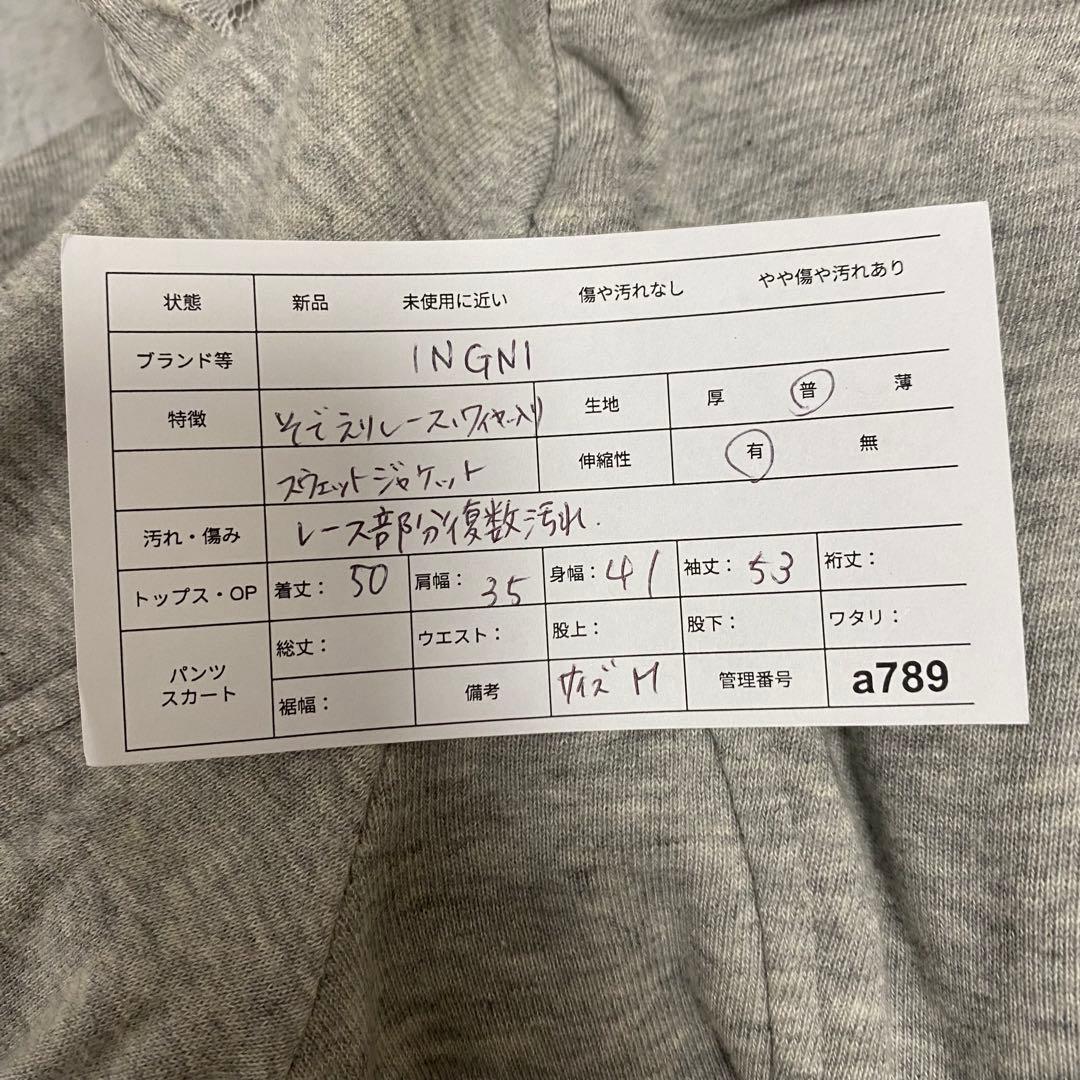 状態 新品 未使用に近い 傷や汚れなし やや傷や汚れあり
ブランド等 INGNI
特徴 そでえりレース、ワイヤー入り 生地 厚 普 薄
スウェットジャケット 伸縮性 有 無
汚れ・傷み レース部分複数汚れ.
トップス・OP 着丈: 50 肩幅: 35 身幅: 41 袖丈: 53 裄丈:
パンツ スカート 総丈: ウエスト: 股上: 股下: ワタリ:
裾幅: 備考 サイズ M 管理番号 a789